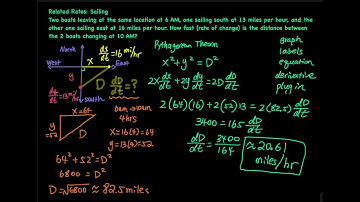 Related Rates: Sailing
Two boats leaving at the same location at 6 AM, one sailing south at 13 miles per hour, and the
other one sailing east at 16 miles per hour. How fast (rate of change) is the distance between
the 2 boats changing at 10 AM?
North
dx/dt = 16 mi/hr
West
x
East
y
D
dD/dt = ?
dy/dt = 13 mi/hr
South
x=64
y=52
D
6am→10am
4hrs
x=16(4)=64
y=13(4)=52
64² + 52² = D²
6800 = D²
D = √6800 ≈ 82.5 miles
Pythagorean Theorem
x² + y² = D²
2x dx/dt + 2y dy/dt = 2D dD/dt
2(64)(16) + 2(52)13 = 2(82.5) dD/dt
3400 = 165 dD/dt
dD/dt = 3400/164 ≈ 20.61
miles/hr
graph
labels
equation
derivative
plug in